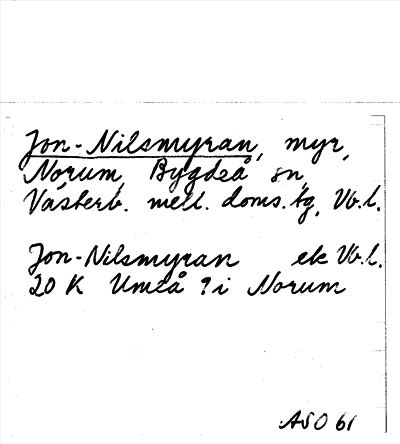 Jon-Nilsmyran, myr,
Norum, Bygdeå sn,
Västerb. mell. doms.tg, Vb.l.
Jon-Nilsmyran ek Vb.l.
20 K Umeå 9 i Norum
ASO 61